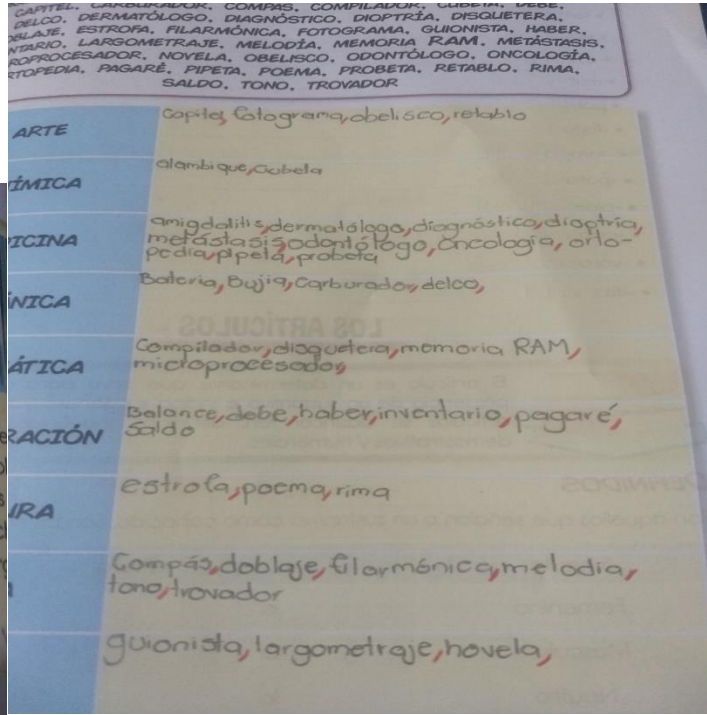 CAPITEL, CARBURADOR, COMPÁS, COMPILADOR, CUBETA, DEBE,
DELCO, DERMATÓLOGO, DIAGNÓSTICO, DIOPTRÍA, DISQUETERA,
OBLAJE, ESTROFA, FILARMÓNICA, FOTOGRAMA, GUIONISTA, HABER,
NTARIO, LARGOMETRAJE, MELODÍA, MEMORIA RAM, METÁSTASIS,
ROPROCESADOR, NOVELA, OBELISCO, ODONTÓLOGO, ONCOLOGÍA,
RTOPEDIA, PAGARÉ, PIPETA, POEMA, PROBETA, RETABLO, RIMA,
SALDO, TONO, TROVADOR
ARTE
Capitel, fotograma, obelisco, retablo
ÍMICA
alambique, Cubeta
ICINA
amigdalitis, dermatólogo, diagnóstico, dioptría,
metástasis, odontólogo, oncología, orto-
pedia, pipeta, probeta
ÁNICA
Bateria, Bujía, Carburador, delco,
LOS ARTÍCULOS
ÁTICA
Compilador, disquetera, memoria RAM,
microprocesador,
RACIÓN
Balance, debe, haber, inventario, pagaré,
Saldo
URA
estrofa, poema, rima
Compás, doblaje, filarmónica, melodia,
tono, trovador
guionista, largometraje, novela,